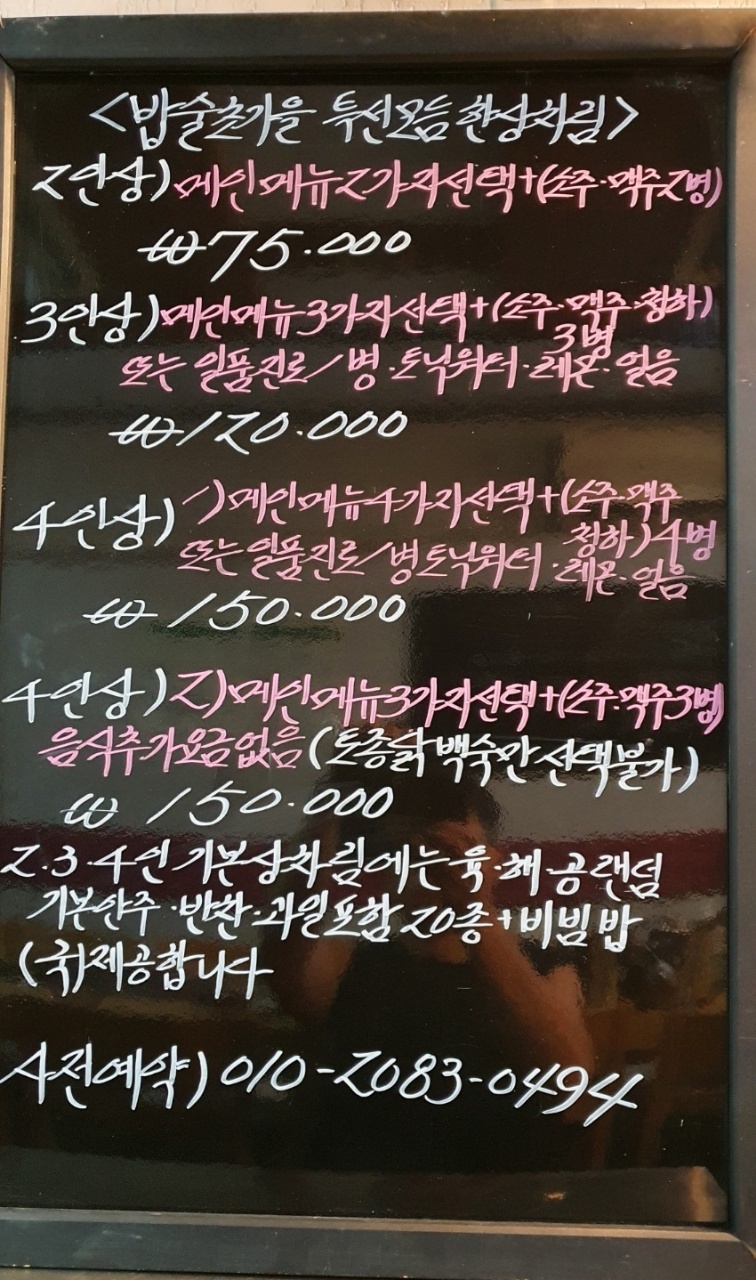 <밥술초가을 특선모듬한상차림>
2인상) 메인메뉴2가지선택+(소주·맥주2병)
₩75.000
3인상) 메인메뉴3가지선택+(소주·맥주·청하)
3병
또는 일품진로/병·토닉워터·레몬·얼음
₩120.000
4인상) 1)메인메뉴4가지선택+(소주·맥주
청하)4병
또는일품진로/병토닉워터·레몬·얼음
₩150.000
4인상) 2)메인메뉴3가지선택+(소주·맥주3병)
음식추가요금없음(토종닭백숙만선택불가)
₩150.000
2.3.4인 기본상차림에는 육·해·공랜덤
기본안주·반찬·과일포함20종+비빔밥
(국)제공합니다
사전예약) 010-2083-0494